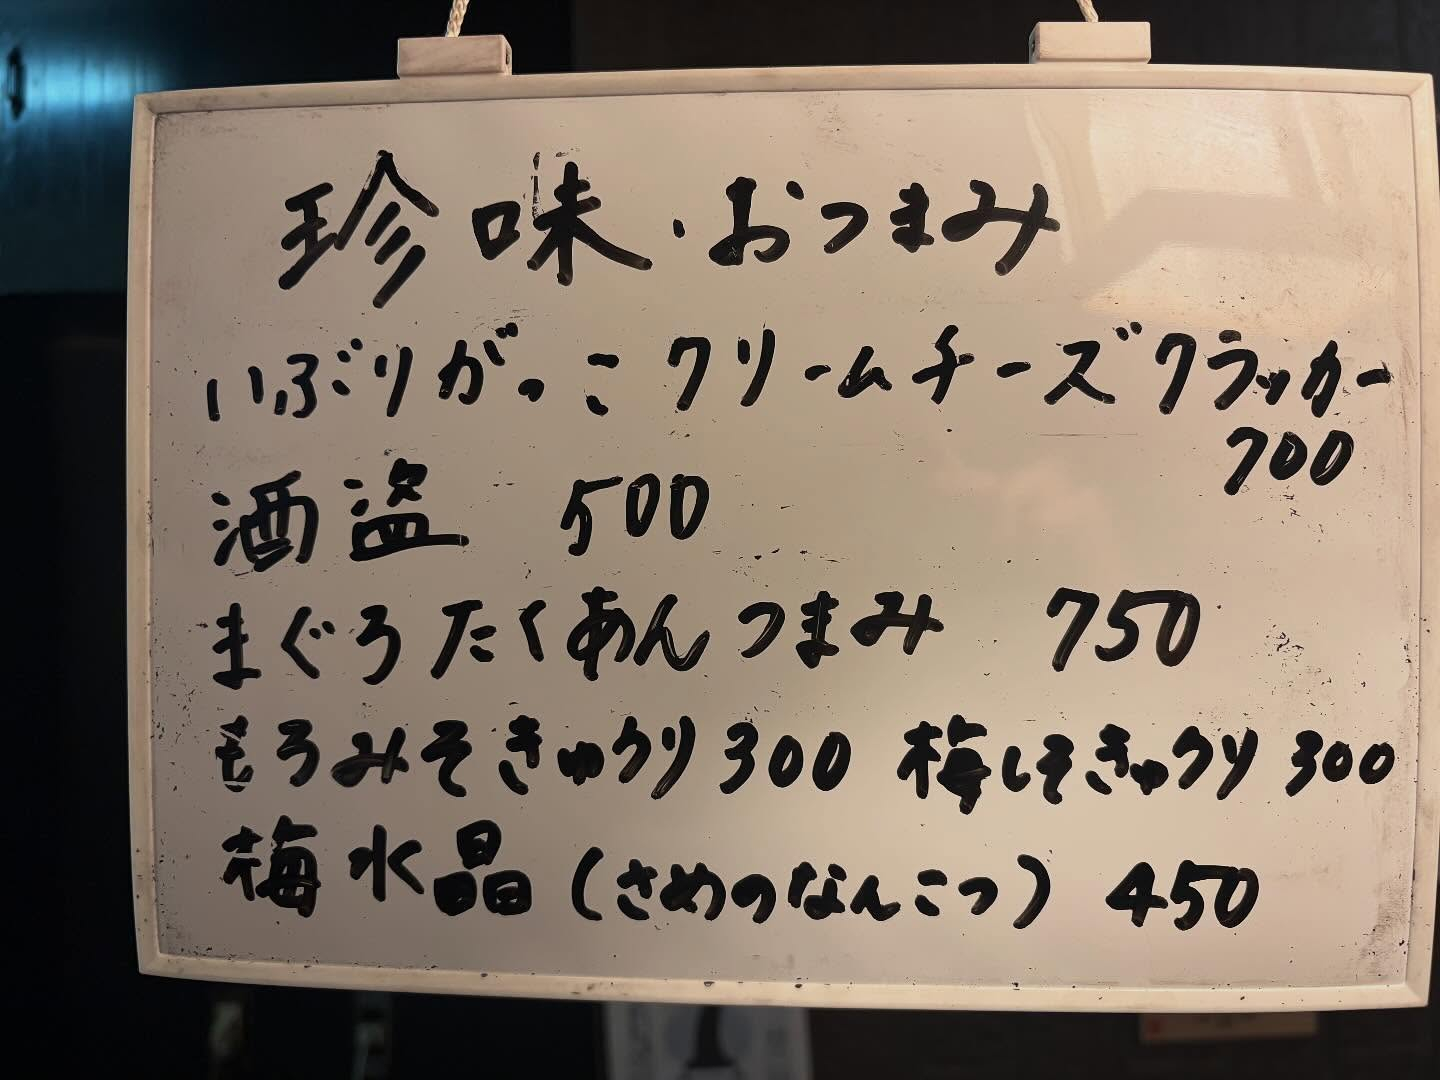 珍味・おつまみ
いぶりがっこクリームチーズクラッカー
700
酒盗 500
まぐろたくあんつまみ 750
もろみそきゅうり 300 梅しそきゅうり 300
梅水晶(さめのなんこつ) 450